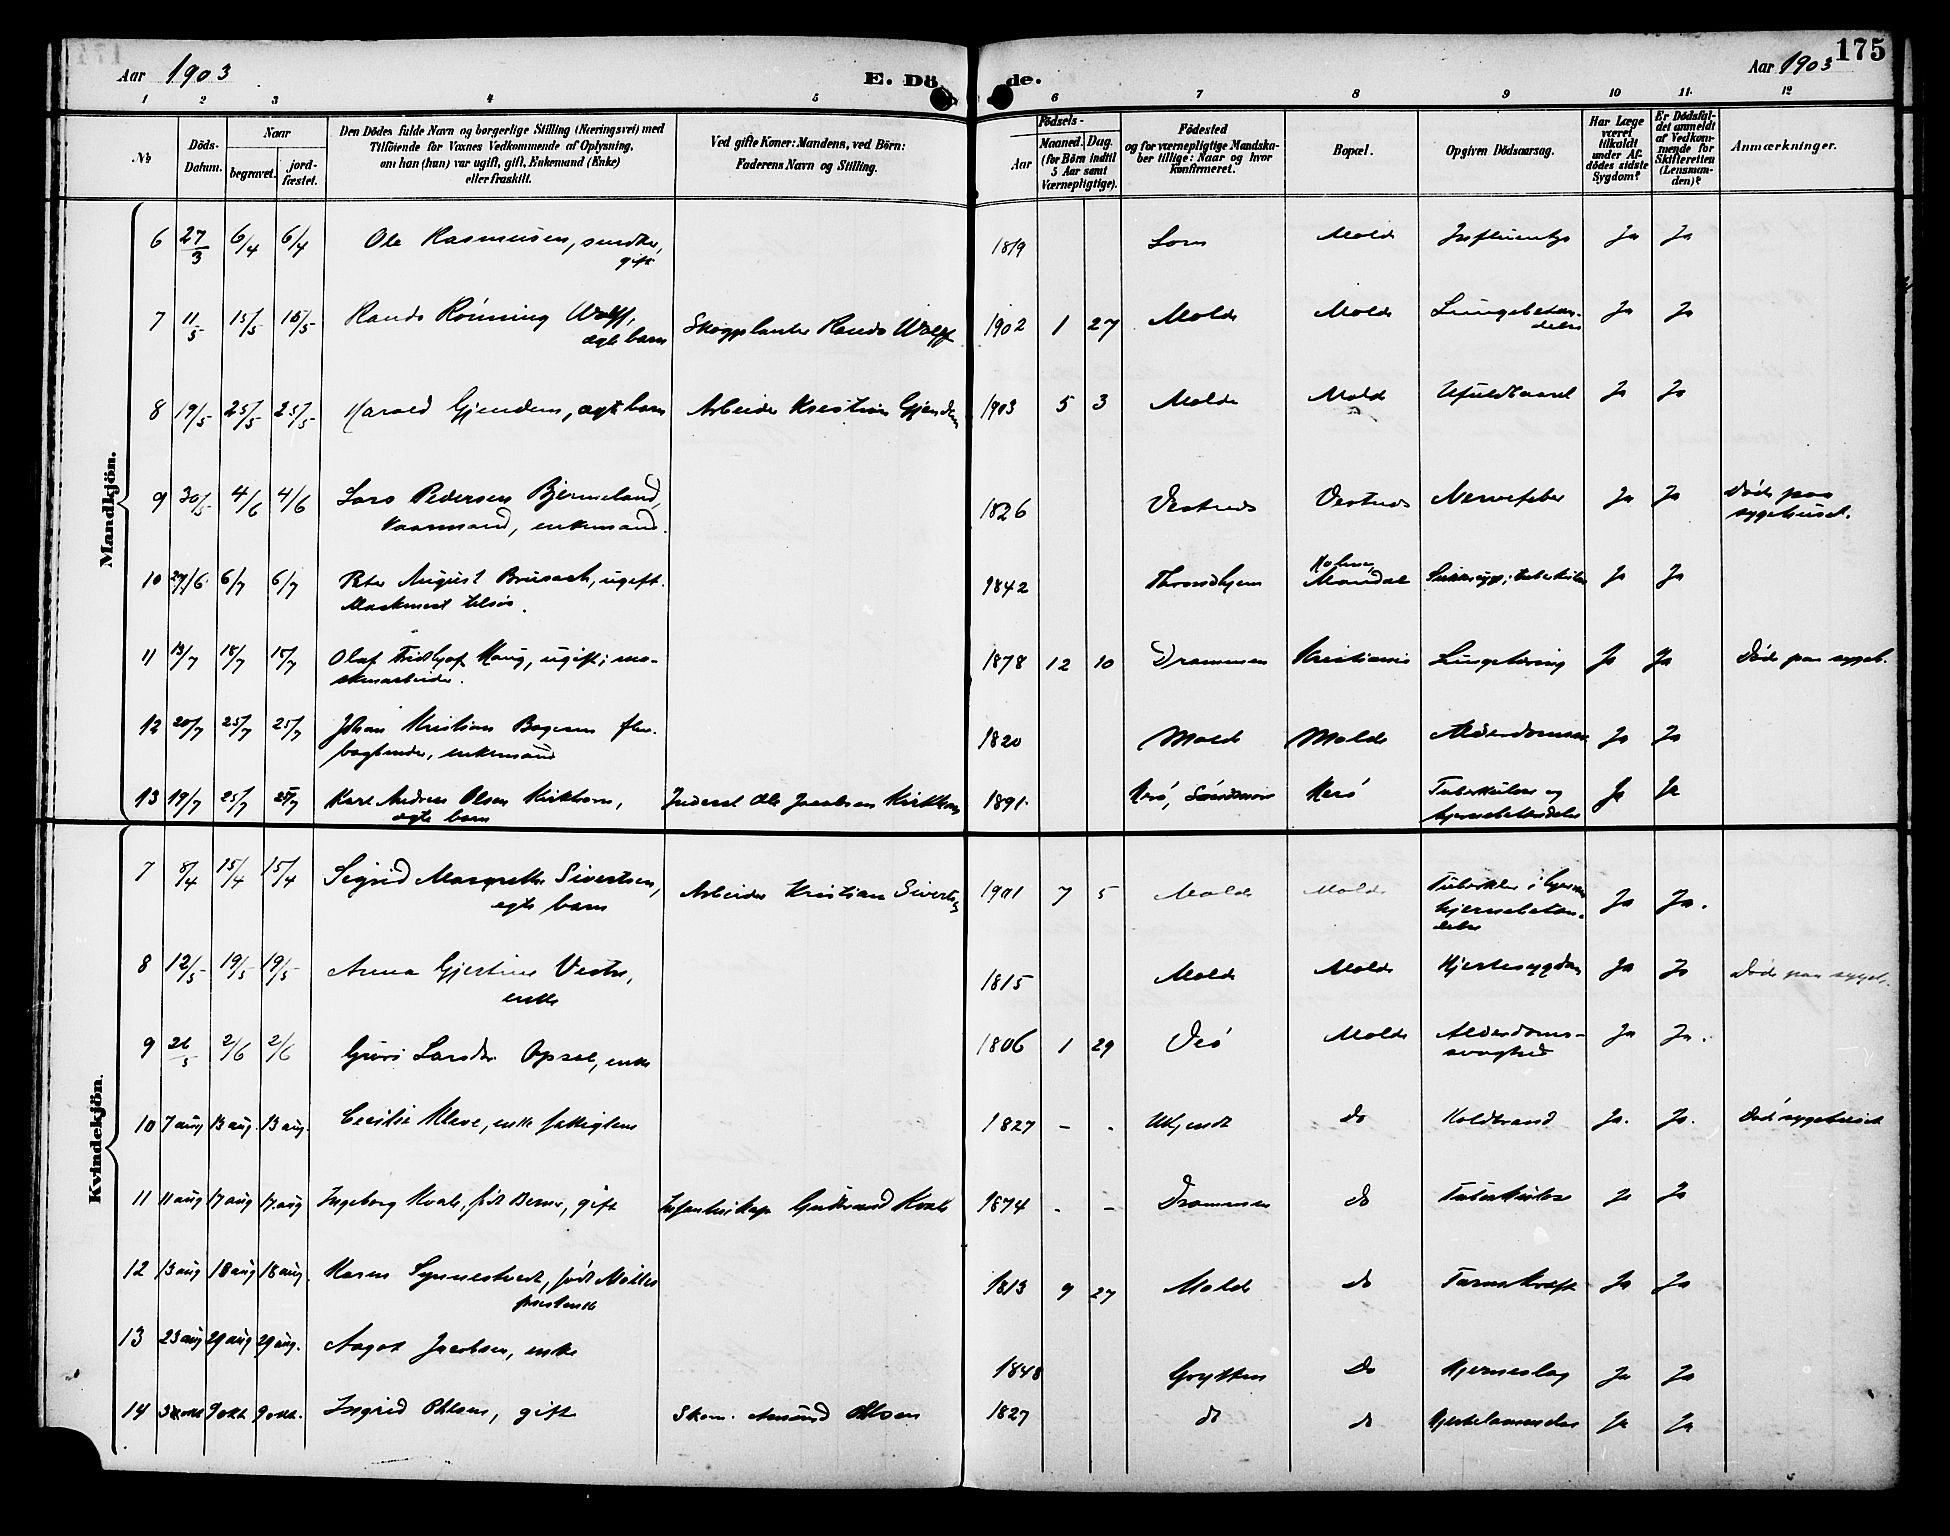 175
Aar 1903
E. Dö de.
Aar 1903
1 2 3 4 5 6 7 8 9 10 11 12
No
Döds-Datum.
Naar
begravet.
jord-fæstet.
Den Dödes fulde Navn og borgerlige Stilling (Næringsvei) med
Tilföiende for Voxnes Vedkommende af Oplysning,
om han (hun) var ugift, gift, Enkemand (Enke)
eller fraskilt.
Ved gifte Koner: Mandens, ved Börn:
Faderens Navn og Stilling.
Födsels-
Aar
Maaned. Dag.
(for Börn indtil
5 Aar samt
Værnepligtige).
Födested
og for værnepligtige Mandska-
ber tillige: Naar og hvor
konfirmeret.
Bopæl.
Opgiven Dödsaarsag.
Har Læge
været
tilkaldt
under Af-
dödes sidste
Sygdom?
Er Dödsfal-
det anmeldt
af Vedkom-
mende for
Skifteretten
(Lensman-
den)?
Anmærkninger.
Mandkjön.
6 27/3 6/4 6/4 Ole Rasmussen, gift 1819 Molde Ja Ja
7 11/5 15/5 15/5 Rands Rönning Wolff, ægte barn Skogplanter Rands Wolff 1902 1 27 Molde Molde Lungebetændelse Ja Ja
8 19/5 25/5 25/5 Harald Gjendem, ægte barn Arbeider Kristian Gjendem 1903 5 3 Molde Molde Ufuldbaaret Ja Ja
9 30/5 4/6 4/6 Lars Pedersen Bjermeland, enkemand. 1826 Vestnes Vestnes Nervefeber Ja Ja Døde paa sygehuset.
10 6/7 6/7 Peter August, ugift. 1842 Throndhjem Mandal Ja Ja
11 13/7 18/7 18/7 Olaf Fridtjof Haug, ugift; maskinarbeider. 1878 12 10 Drammen Kristiania Ja Ja Døde paa sygeh.
12 20/7 25/7 25/7 Johan Kristian, enkemand 1820 Molde Molde Ja Ja
13 19/7 25/7 25/7 Karl Andreas Olsen Kirkhorn, ægte barn Inderst Ole Jacobsen Kirkhorn 1891 Herö, Herö Tuberkulose og hjernebetændelse Ja Ja
Kvindekjön.
7 8/4 15/4 15/4 Sigrid Margrethe Sivertsen, ægte barn Arbeider Kristian Sivertsen 1901 7 5 Molde Molde hjernebetændelse Ja Ja.
8 12/5 19/5 19/5 Anna Gjertine, enke 1815 Molde Molde Hjertesygdom Ja Ja Døde paa sygeh.
9 26/5 2/6 2/6 Guri Larsdtr Opsal, enke 1806 1 29 Veö Molde Alderdoms-svaghed Ja Ja.
10 7 aug 13 aug. 13 aug. Cecilie Kleve, enke fattiglem 1827 - - Ukjendt do Koldbrand Ja. Ja. Død sygehuset
11 11 aug 17 aug 17 aug Ingeborg Kvale, født, gift Gudbrand Kvale 1874 - - Drammen do Tuberkulose Ja Ja
12 13 aug 18 aug 18 aug. Karen Synnestvedt, født Möller presteenke 1813 9 27 Molde do Tarmkræft Ja Ja
13 23 aug 29 aug 29 aug. Aagot Jacobsen, enke 1848 Grytten Do Hjerneslag Ja Ja
14 9 okt 9 okt. Ingrid Ohlsen, gift Skom. Amund Ohlsen 1827 do do Ja Ja